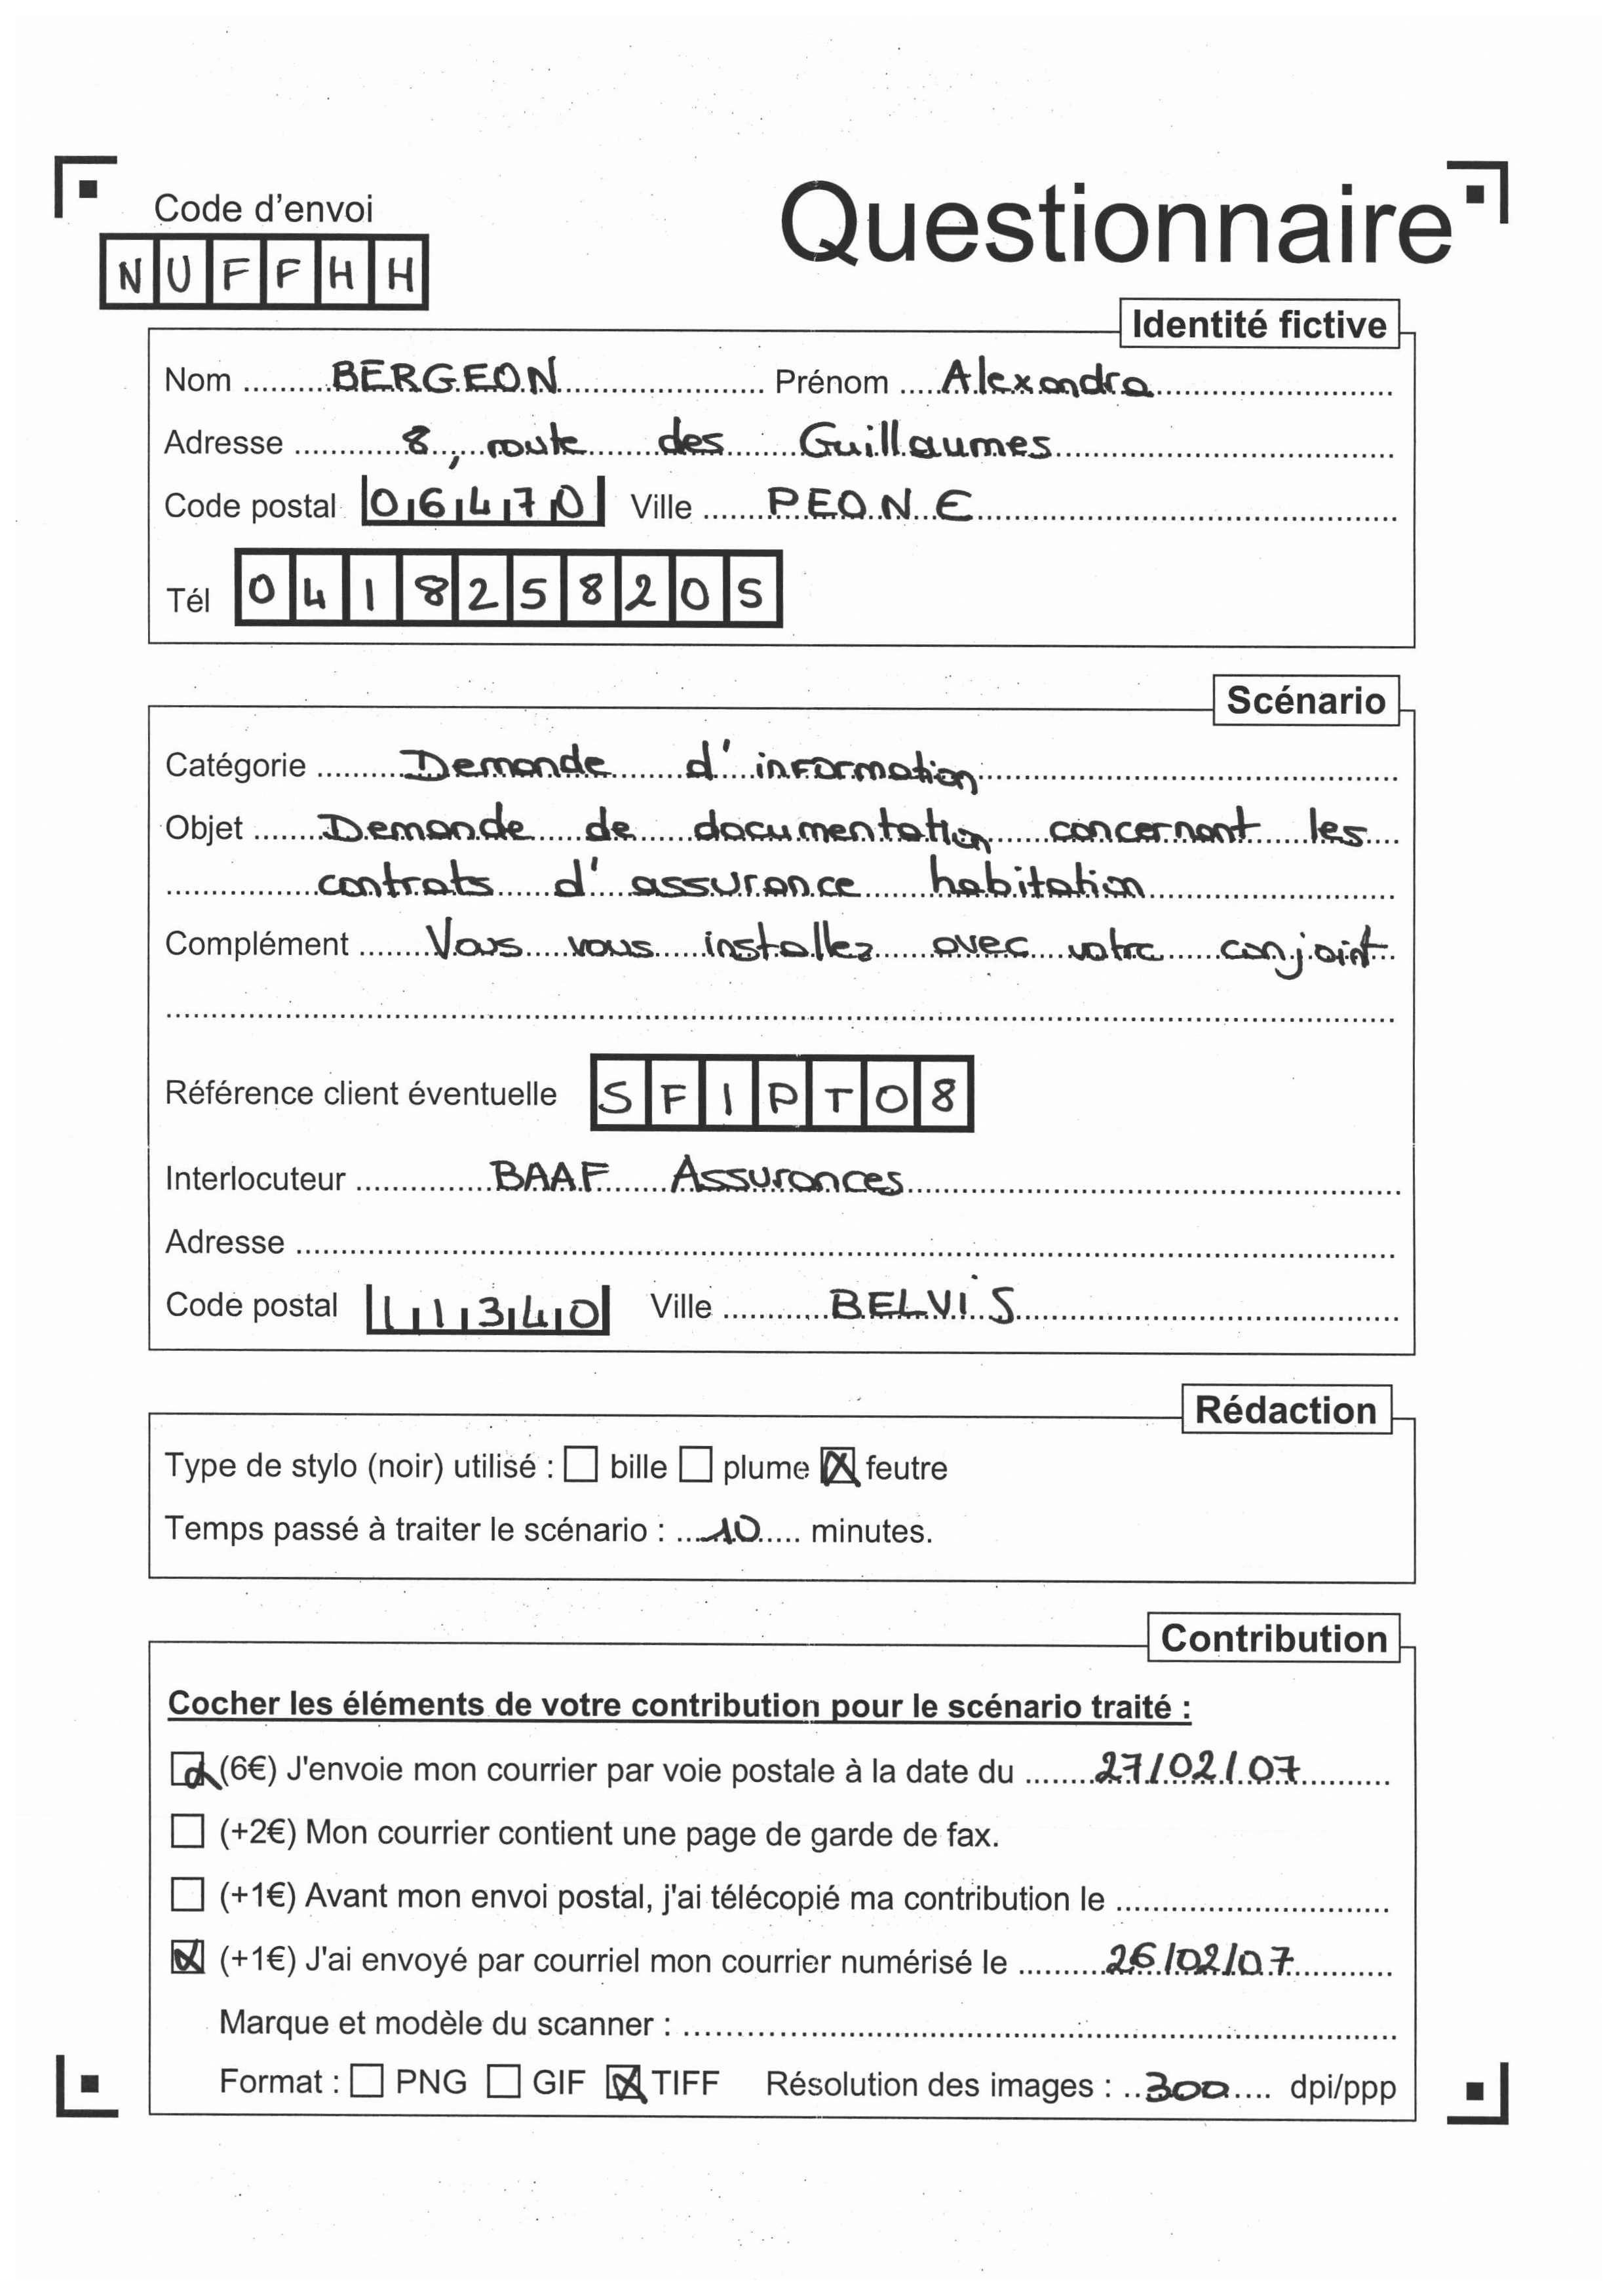 Code d'envoi
Questionnaire
NUFFHH
Identité fictive
Nom BERGEON Prénom Alexandra
Adresse 8, route des Guillaumes
Code postal 06470 Ville PEONE
Tél 0418258205
Scénario
Catégorie Demande d'information
Objet Demande de documentation concernant les
contrats d'assurance habitation
Complément Vous vous installez avec votre conjoint
Référence client éventuelle SFIPT08
Interlocuteur BAAF Assurances
Adresse
Code postal 11340 Ville BELVIS
Rédaction
Type de stylo (noir) utilisé : bille plume feutre
Temps passé à traiter le scénario : 10 minutes.
Contribution
Cocher les éléments de votre contribution pour le scénario traité :
(6€) J'envoie mon courrier par voie postale à la date du 27/02/07
(+2€) Mon courrier contient une page de garde de fax.
(+1€) Avant mon envoi postal, j'ai télécopié ma contribution le
(+1€) J'ai envoyé par courriel mon courrier numérisé le 26/02/07
Marque et modèle du scanner :
Format : PNG GIF TIFF Résolution des images : 300 dpi/ppp